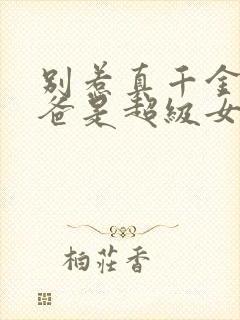 别惹真千金
爸是超级女
柏莊香